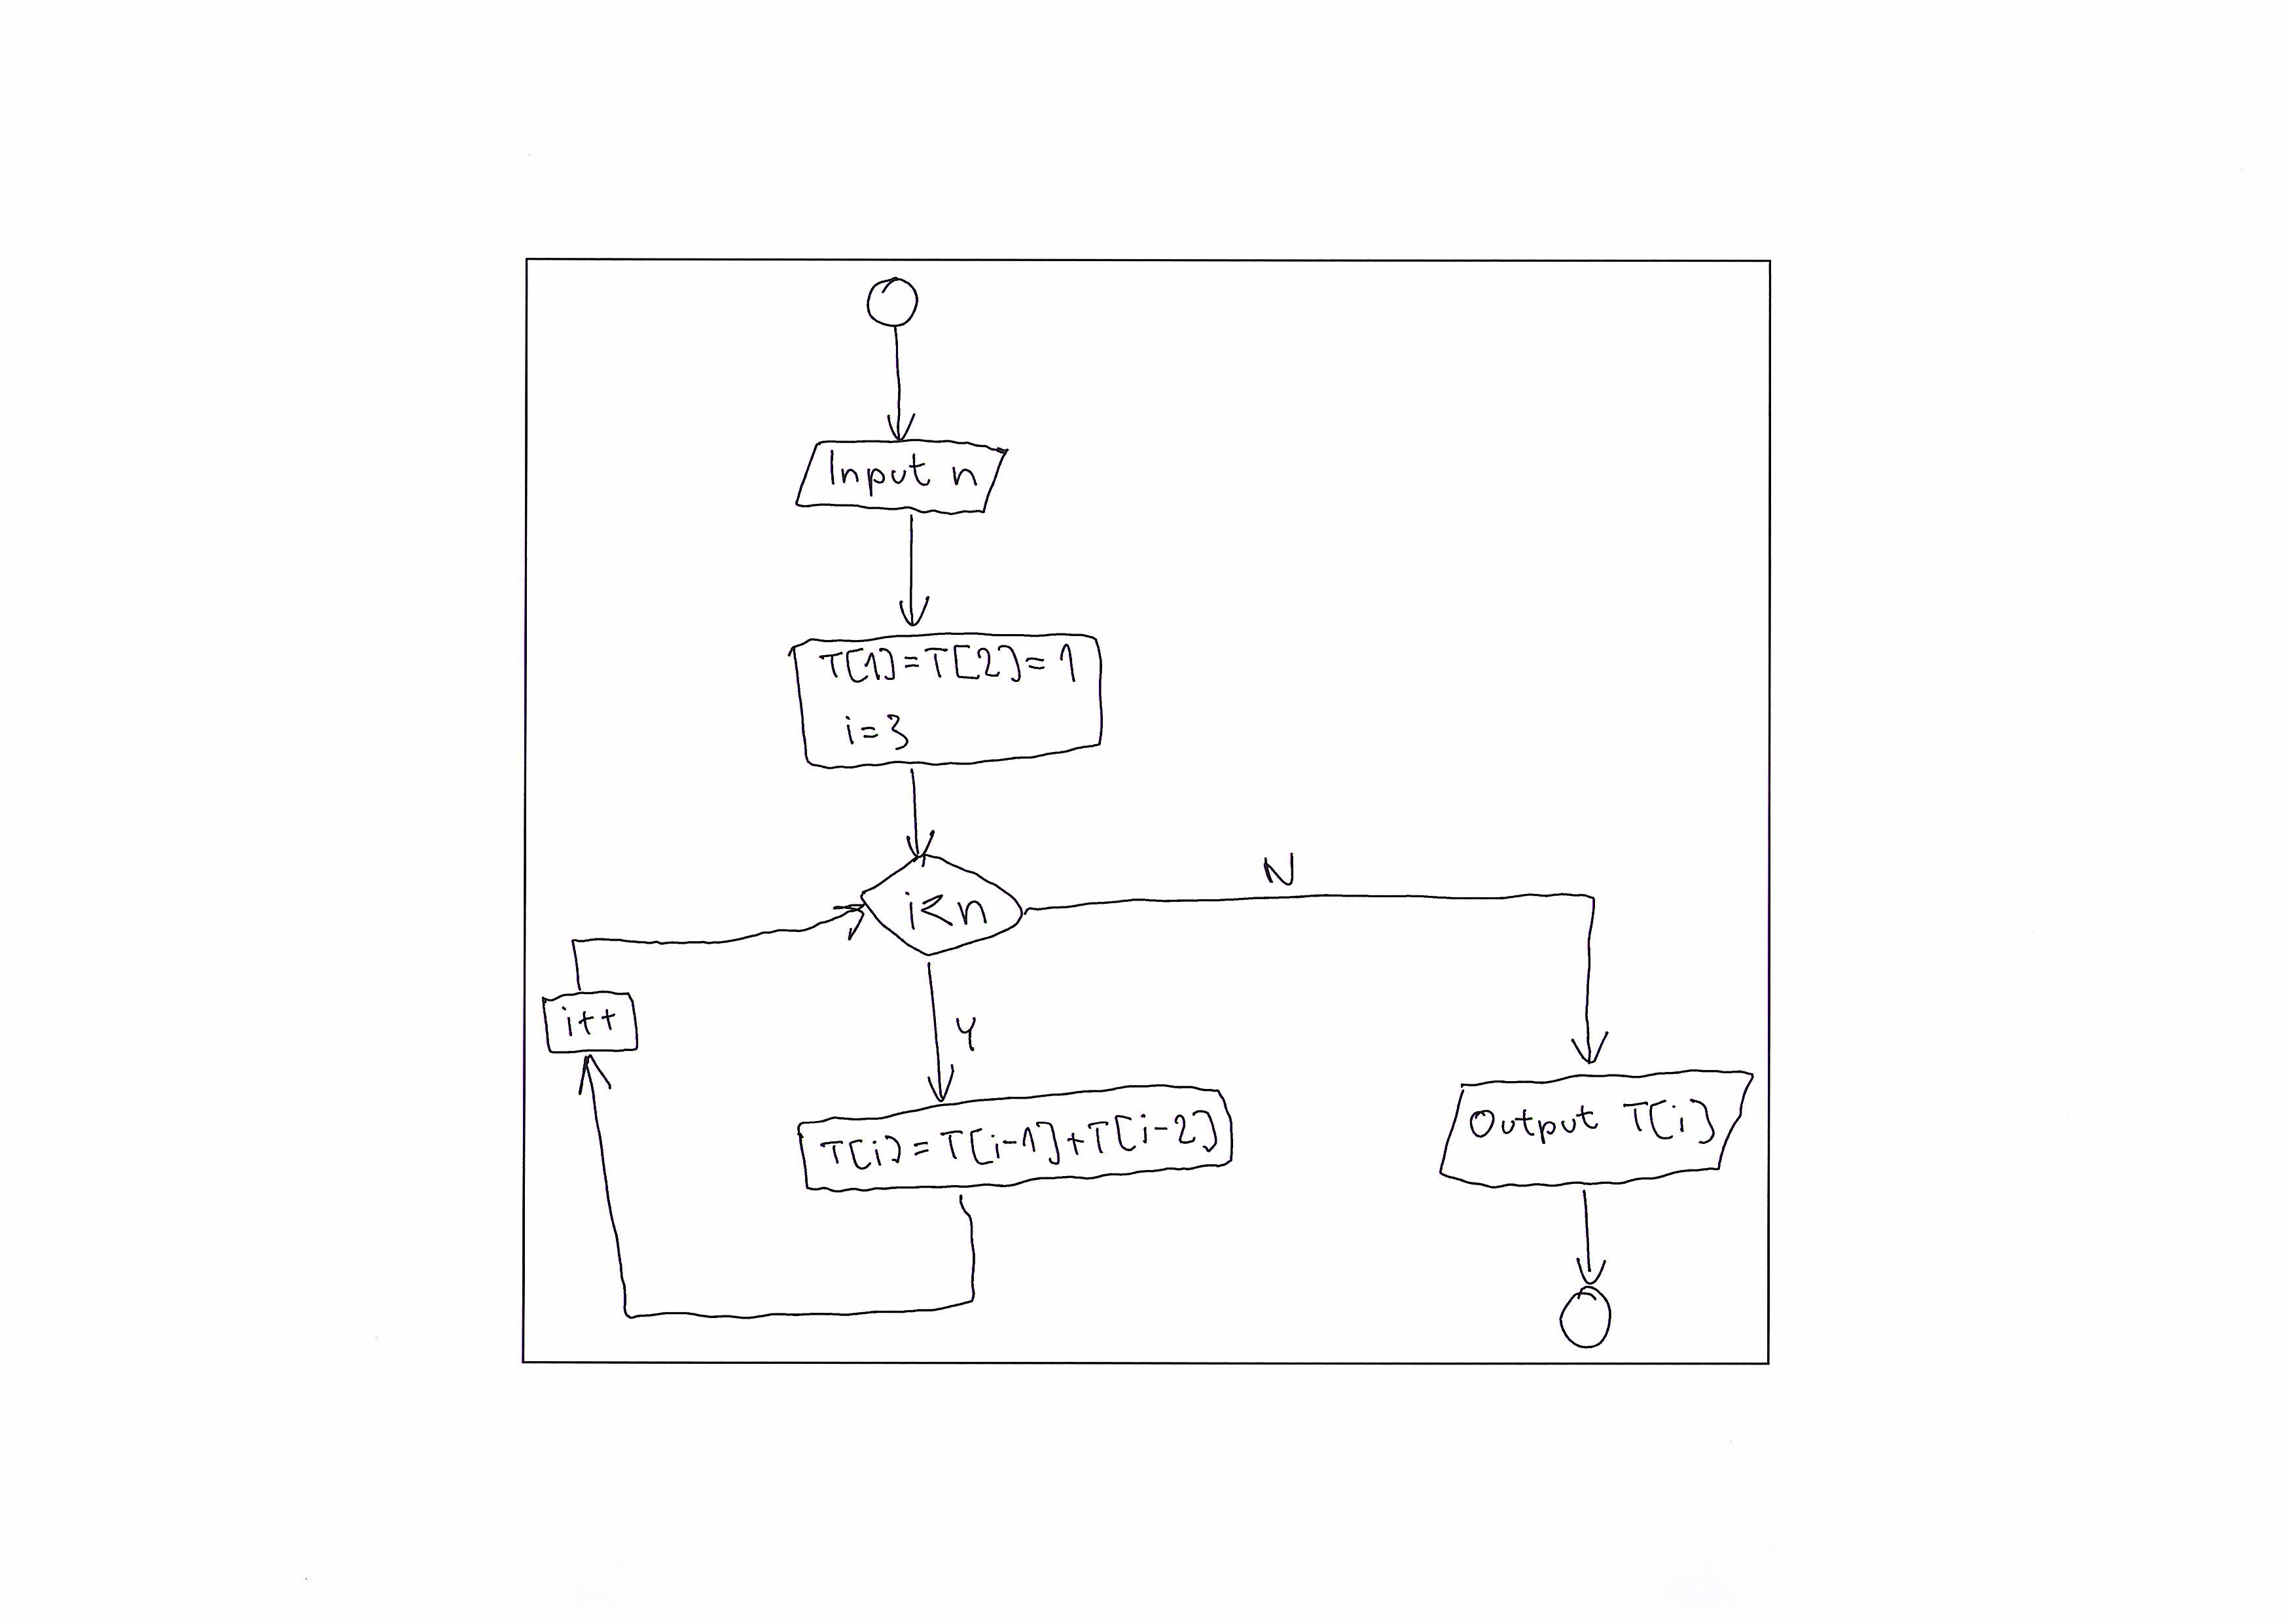 Input n
T[1]=T[2]=1
i=3
i<n
N
i++
Y
T[i]=T[i-1]+T[i-2]
Output T[i]